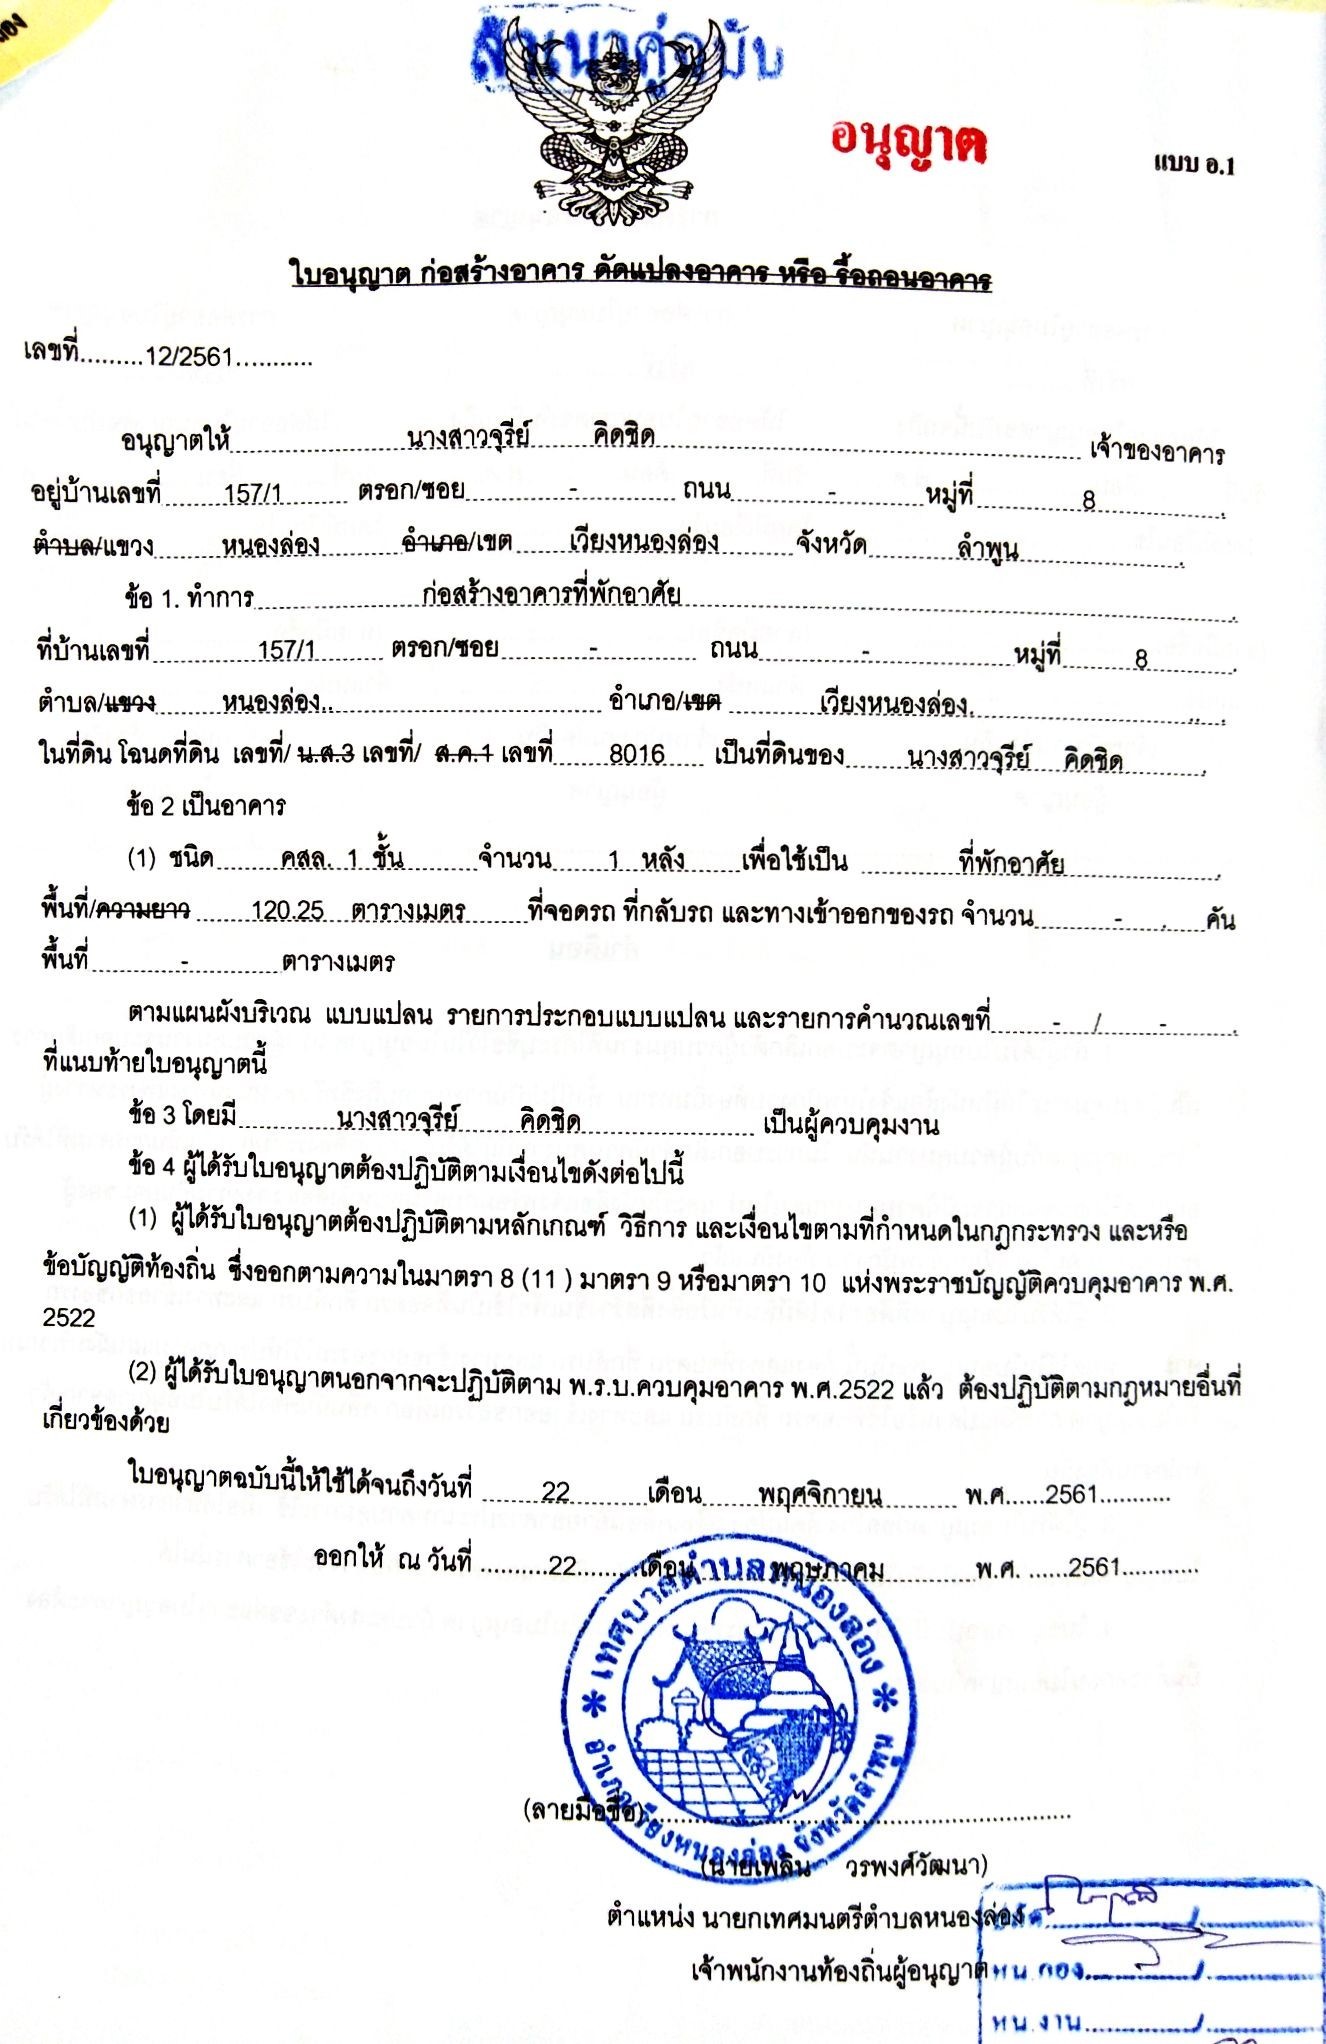 สำเนาคู่ฉบับ
อนุญาต
แบบ อ.1
ใบอนุญาต ก่อสร้างอาคาร ดัดแปลงอาคาร หรือ รื้อถอนอาคาร
เลขที่.........12/2561...........
อนุญาตให้ นางสาวจุรีย์ คิดชิด เจ้าของอาคาร
อยู่บ้านเลขที่ 157/1 ตรอก/ซอย - ถนน - หมู่ที่ 8
ตำบล/แขวง หนองล่อง อำเภอ/เขต เวียงหนองล่อง จังหวัด ลำพูน
ข้อ 1. ทำการ ก่อสร้างอาคารที่พักอาศัย
ที่บ้านเลขที่ 157/1 ตรอก/ซอย - ถนน - หมู่ที่ 8
ตำบล/แขวง หนองล่อง.. อำเภอ/เขต เวียงหนองล่อง.
ในที่ดิน โฉนดที่ดิน เลขที่/ น.ส.3 เลขที่/ ส.ค.1 เลขที่ 8016 เป็นที่ดินของ นางสาวจุรีย์ คิดชิด
ข้อ 2 เป็นอาคาร
(1) ชนิด คสล. 1 ชั้น จำนวน 1 หลัง เพื่อใช้เป็น ที่พักอาศัย
พื้นที่/ความยาว 120.25 ตารางเมตร ที่จอดรถ ที่กลับรถ และทางเข้าออกของรถ จำนวน - คัน
พื้นที่ - ตารางเมตร
ตามแผนผังบริเวณ แบบแปลน รายการประกอบแบบแปลน และรายการคำนวณเลขที่ - / -
ที่แนบท้ายใบอนุญาตนี้
ข้อ 3 โดยมี นางสาวจุรีย์ คิดชิด เป็นผู้ควบคุมงาน
ข้อ 4 ผู้ได้รับใบอนุญาตต้องปฏิบัติตามเงื่อนไขดังต่อไปนี้
(1) ผู้ได้รับใบอนุญาตต้องปฏิบัติตามหลักเกณฑ์ วิธีการ และเงื่อนไขตามที่กำหนดในกฎกระทรวง และหรือ
ข้อบัญญัติท้องถิ่น ซึ่งออกตามความในมาตรา 8 (11 ) มาตรา 9 หรือมาตรา 10 แห่งพระราชบัญญัติควบคุมอาคาร พ.ศ.
2522
(2) ผู้ได้รับใบอนุญาตนอกจากจะปฏิบัติตาม พ.ร.บ.ควบคุมอาคาร พ.ศ.2522 แล้ว ต้องปฏิบัติตามกฎหมายอื่นที่
เกี่ยวข้องด้วย
ใบอนุญาตฉบับนี้ให้ใช้ได้จนถึงวันที่ 22 เดือน พฤศจิกายน พ.ศ......2561...........
ออกให้ ณ วันที่ ..........22.........เดือน พฤษภาคม พ.ศ. ......2561...........
เทศบาลตำบลหนองล่อง
อำเภอเวียงหนองล่อง จังหวัดลำพูน
(ลายมือชื่อ)
(นายเพลิน วรพงศ์วัฒนา)
ตำแหน่ง นายกเทศมนตรีตำบลหนองล่อง
เจ้าพนักงานท้องถิ่นผู้อนุญาต
ปลัด............/............
หน.กอง............/............
หน.งาน............/............